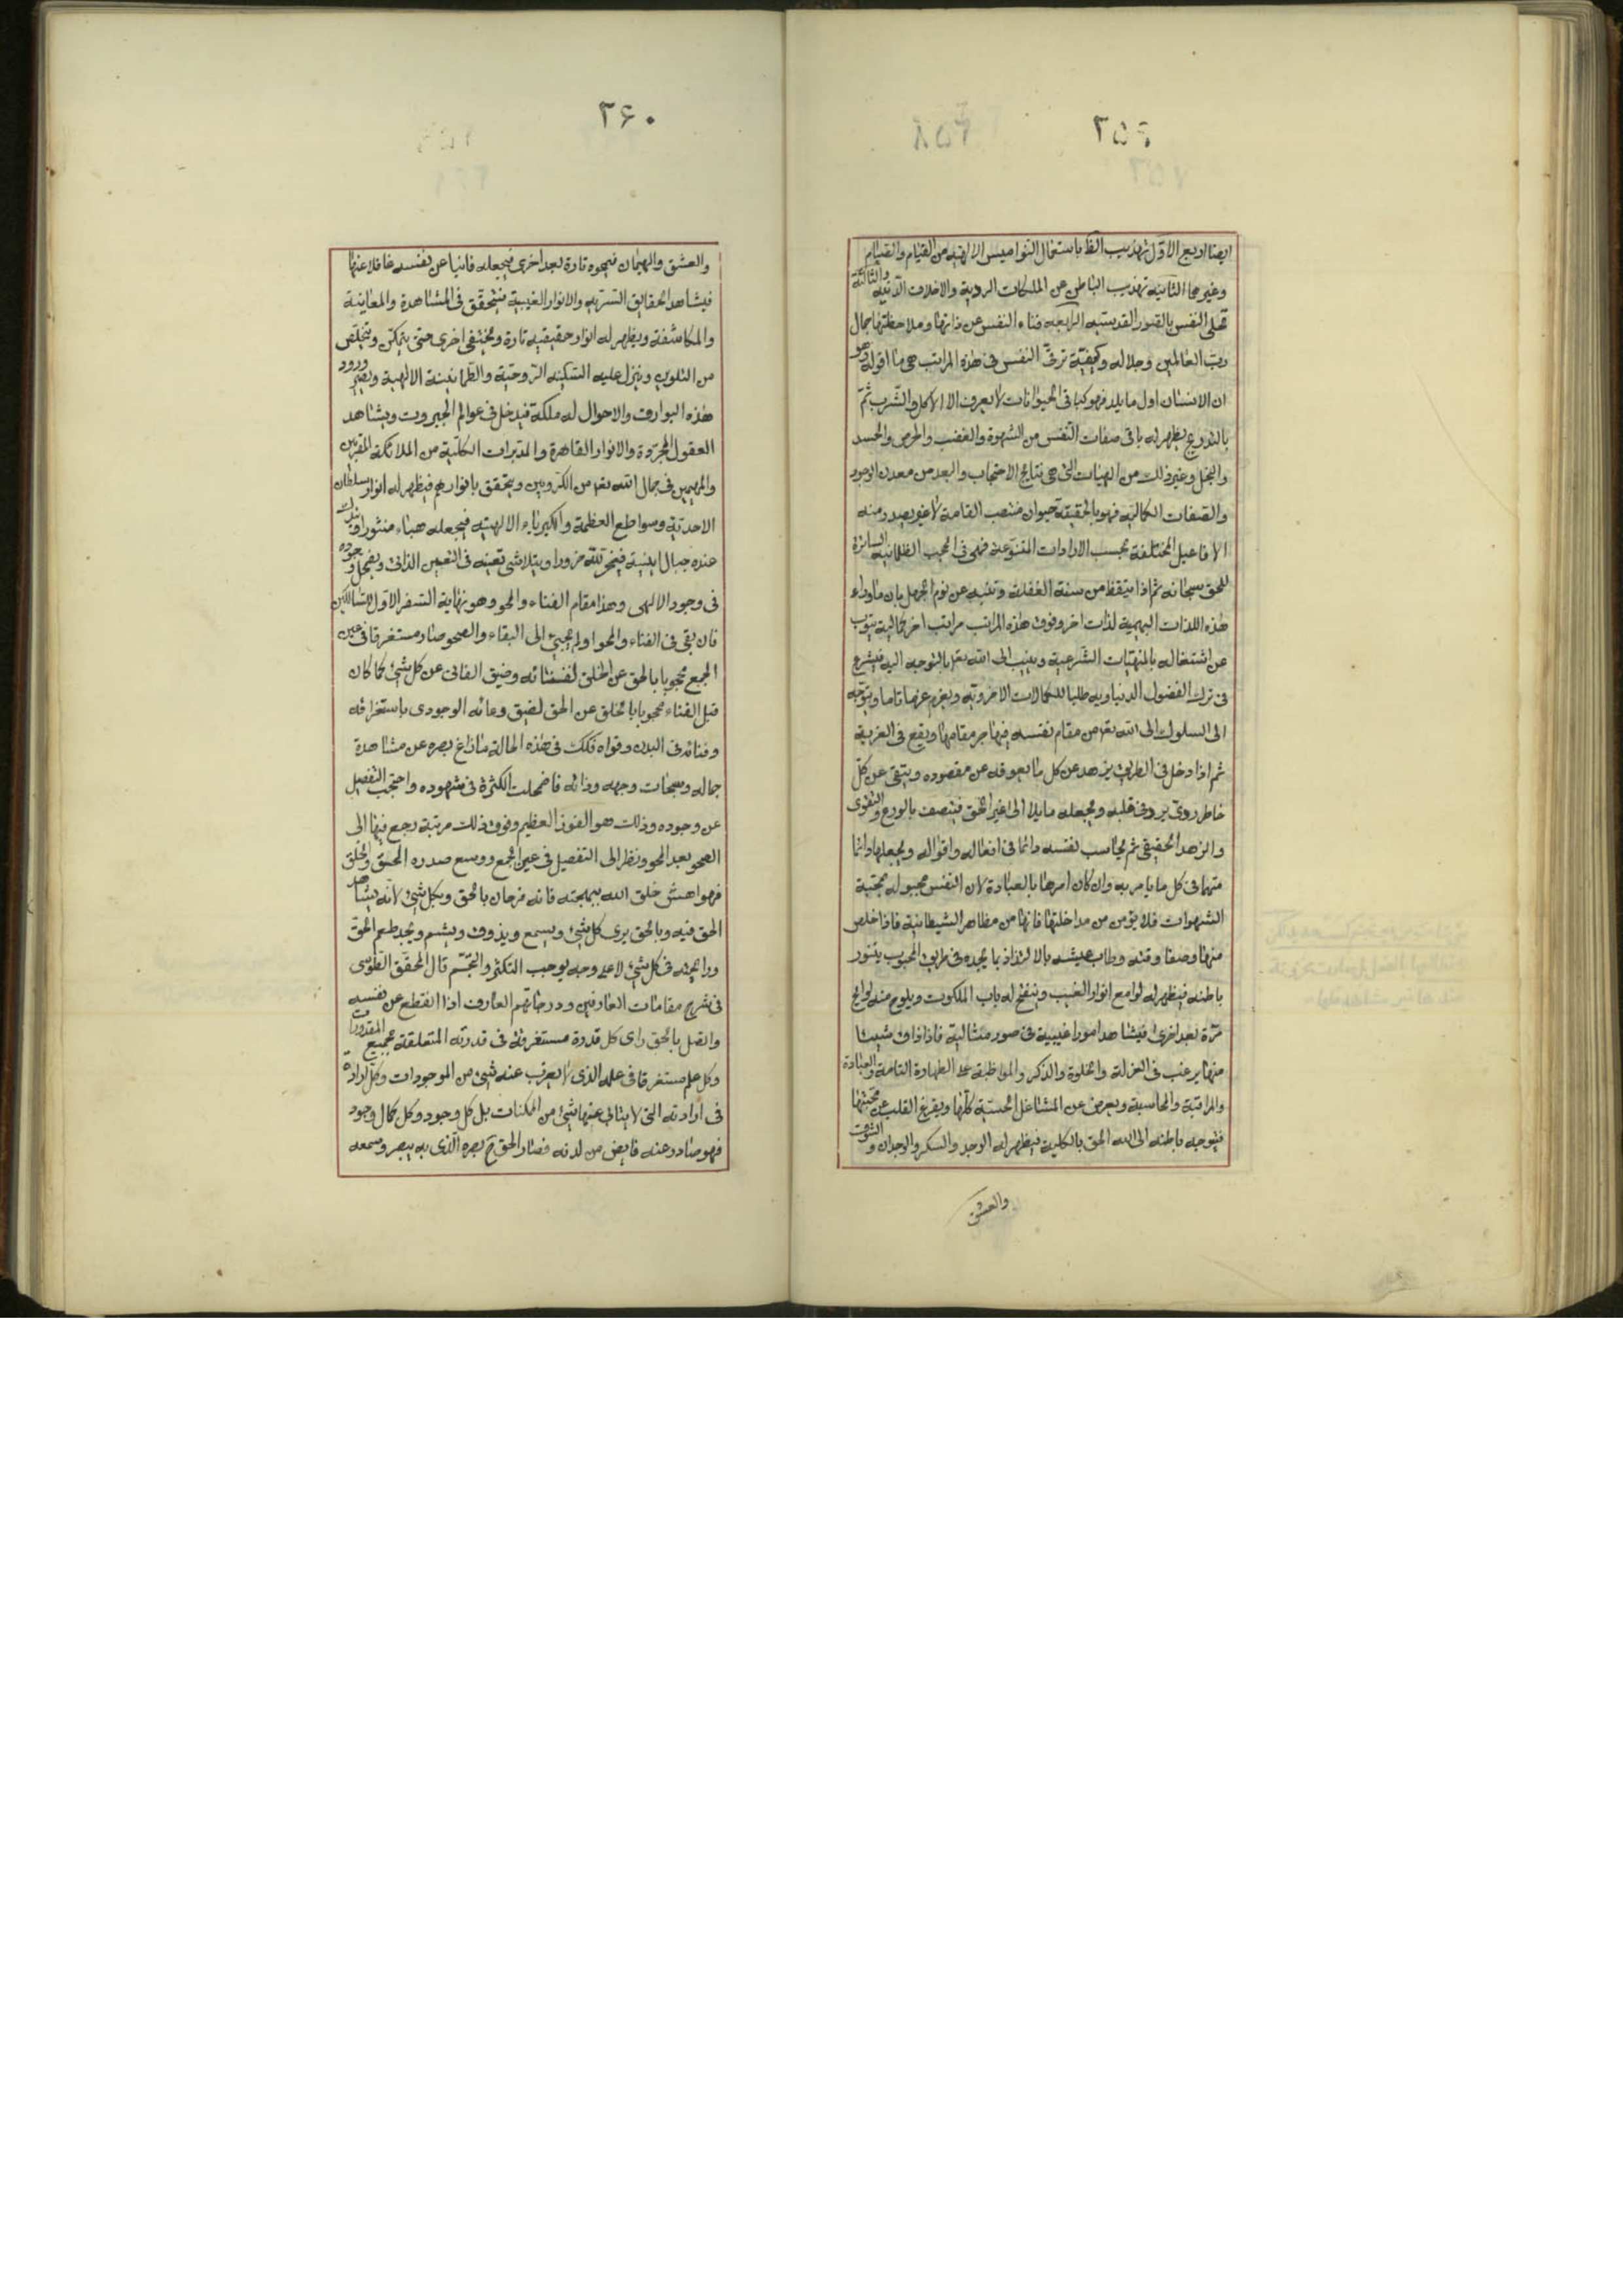 ٢٥٩
ايضا اربع الاول تهذيب الظ باستعمال النواميس الالهية من القيام والصيام
وغيرهما الثانية تهذيب الباطن عن الملكات الردية والاخلاق الدنية والثالثة
تحلى النفس بالصور القدسية الرابعة فناء النفس عن ذاتها وملاحظتها جمال
رب العالمين وجلاله وكيفية ترقى النفس فى هذه المراتب هى ما اقوله وهو
ان الانسان اول ما يلد فهو كباقى الحيوانات لا يعرف الا الاكل والشرب ثم
بالتدريج يظهر له باقى صفات النفس من الشهوة والغضب والحرص والحسد
والبخل وغير ذلك من الهيئات التى هى نتايج الاحتجاب والبعد من معدن الوجود
والصفات الكمالية فهو بالحقيقة حيوان منتصب القامة لا غير يصدر منه
الافاعيل المختلفة بحسب الارادات المتنوعة فهى فى الحجب الظلمانية الساترة
للحق سبحانه ثم اذا تيقظ من سنة الغفلة وتنبه عن نوم الجهل بان ماوراء
هذه اللذات البهيمية لذات اخر وفوق هذه المراتب مراتب اخر كمالية يتوب
عن اشتغاله بالمنهيات الشرعية وينيب الى الله تعه بالتوجه اليه فيشرع
فى ترك الفضول الدنياوية طلبا للكمالات الاخروية ويعزم عزما تاما ويتوجه
الى السلوك الى الله تعه من مقام نفسه فيهاجر مقامها ويقع فى الغربة
ثم اذا دخل فى الطريق يزهد عن كل ما يعوقه عن مقصوده ويتقى عن كل
خاطر ردى يرد فى قلبه ويجعله مايلا الى غير الحق فيتصف بالورع والتقوى
والزهد الحقيقى ثم يحاسب نفسه دائما فى افعاله واقواله ويجعلها دائما
متهما فى كل ما يامر به وان كان امرها بالعبادة لان النفس مجبولة بمحبة
الشهوات فلا يؤمن من مداخلتها فانها من مظاهر الشيطانية فاذا خلص
منها وصفا وقته وطاب عيشه بالالتذاذ بما يجده فى طريق المحبوب يتنور
باطنه فيظهر له لوامع انوار الغيب وينفتح له باب الملكوت ويلوح منه لوايح
مرة بعد اخرى فيشاهد امورا غيبية فى صور مثالية فاذا ذاق شيئا
منها يرغب فى العزلة والخلوة والذكر والمواظبة على الطهارة التامة والعبادة
والمراقبة والمحاسبة ويعرض عن المشاغل الحسية كلها ويفرغ القلب عن محبتها
فيتوجه باطنه الى الله الحق بالكلية فيظهر له الوجد والسكر والوجدان والشوق
والعشق
٢۶٠
والعشق والهيمان فيمحوه تارة بعد اخرى فيجعله فانيا عن نفسه غافلا عنها
فيشاهد الحقايق السرية والانوار الغيبية فيتحقق فى المشاهدة والمعاينة
والمكاشفة ويظهر له انوار حقيقية تارة ويختفى اخرى حتى يتمكن ويتخلص
من التلوين وينزل عليه السكينة الروحية والطمانينة الالهية ويصير ورود
هذه البوارق والاحوال له ملكة فيدخل فى عوالم الجبروت ويشاهد
العقول المجردة والانوار القاهرة والمدبرات الكلية من الملائكة المقربين
والمهيمين فى جمال الله تعه من الكروبيين ويتحقق بانوارهم فيظهر له انوار سلطان
الاحدية وسواطع العظمة والكبرياء الالهية فيجعله هباء منثورا ويندك
عنده جبال انيته فيخر لله خرورا ويتلاشى تعينه فى التعين الذاتى ويضمحل وجوده
فى وجود الالهى وهذا مقام الفناء والمحو وهو نهاية السفر الاول للسالكين
فان بقى فى الفناء والمحو ولم يجئ الى البقاء والصحو صار مستغرقا فى عين
الجمع محجوبا بالحق عن الخلق لفنائه وضيق الفانى عن كل شئ كما كان
قبل الفناء محجوبا بالخلق عن الحق لضيق وعائه الوجودى باستغراقه
وفنائه فى البدن وقواه فكك فى هذه الحالة ما زاغ بصره عن مشاهدة
جماله وسبحات وجهه وذاته فاضمحلت الكثرة فى شهوده واحتجب التفصيل
عن وجوده وذلك هو الفوز العظيم وفوق ذلك مرتبة رجع فيها الى
الصحو بعد المحو ونظر الى التفصيل فى عين الجمع ووسع صدره الحق والخلق
فهو اهش خلق الله ببهجته فانه فرحان بالحق وبكل شئ لانه يشاهد
الحق فيه وبالحق يرى كل شئ ويسمع ويذوق ويشم ويجد طعم الحق
ورائحته فى كل شئ لا على وجه يوجب التكثر والتجسم قال المحقق الطوسى
فى شرح مقامات العارفين ودرجاتهم العارف اذا انقطع عن نفسه
واتصل بالحق راى كل قدرة مستغرقة فى قدرته المتعلقة بجميع المقدورات
وكل علم مستغرقا فى علمه الذى لا يعزب عنه شئ من الموجودات وكل ارادة
فى ارادته التى لا يتابى عنها شئ من الممكنات بل كل وجود وكل كمال وجود
فهو صادر عنه فايض من لدنه فصار الحق ح بصره الذى به يبصر وسمعه